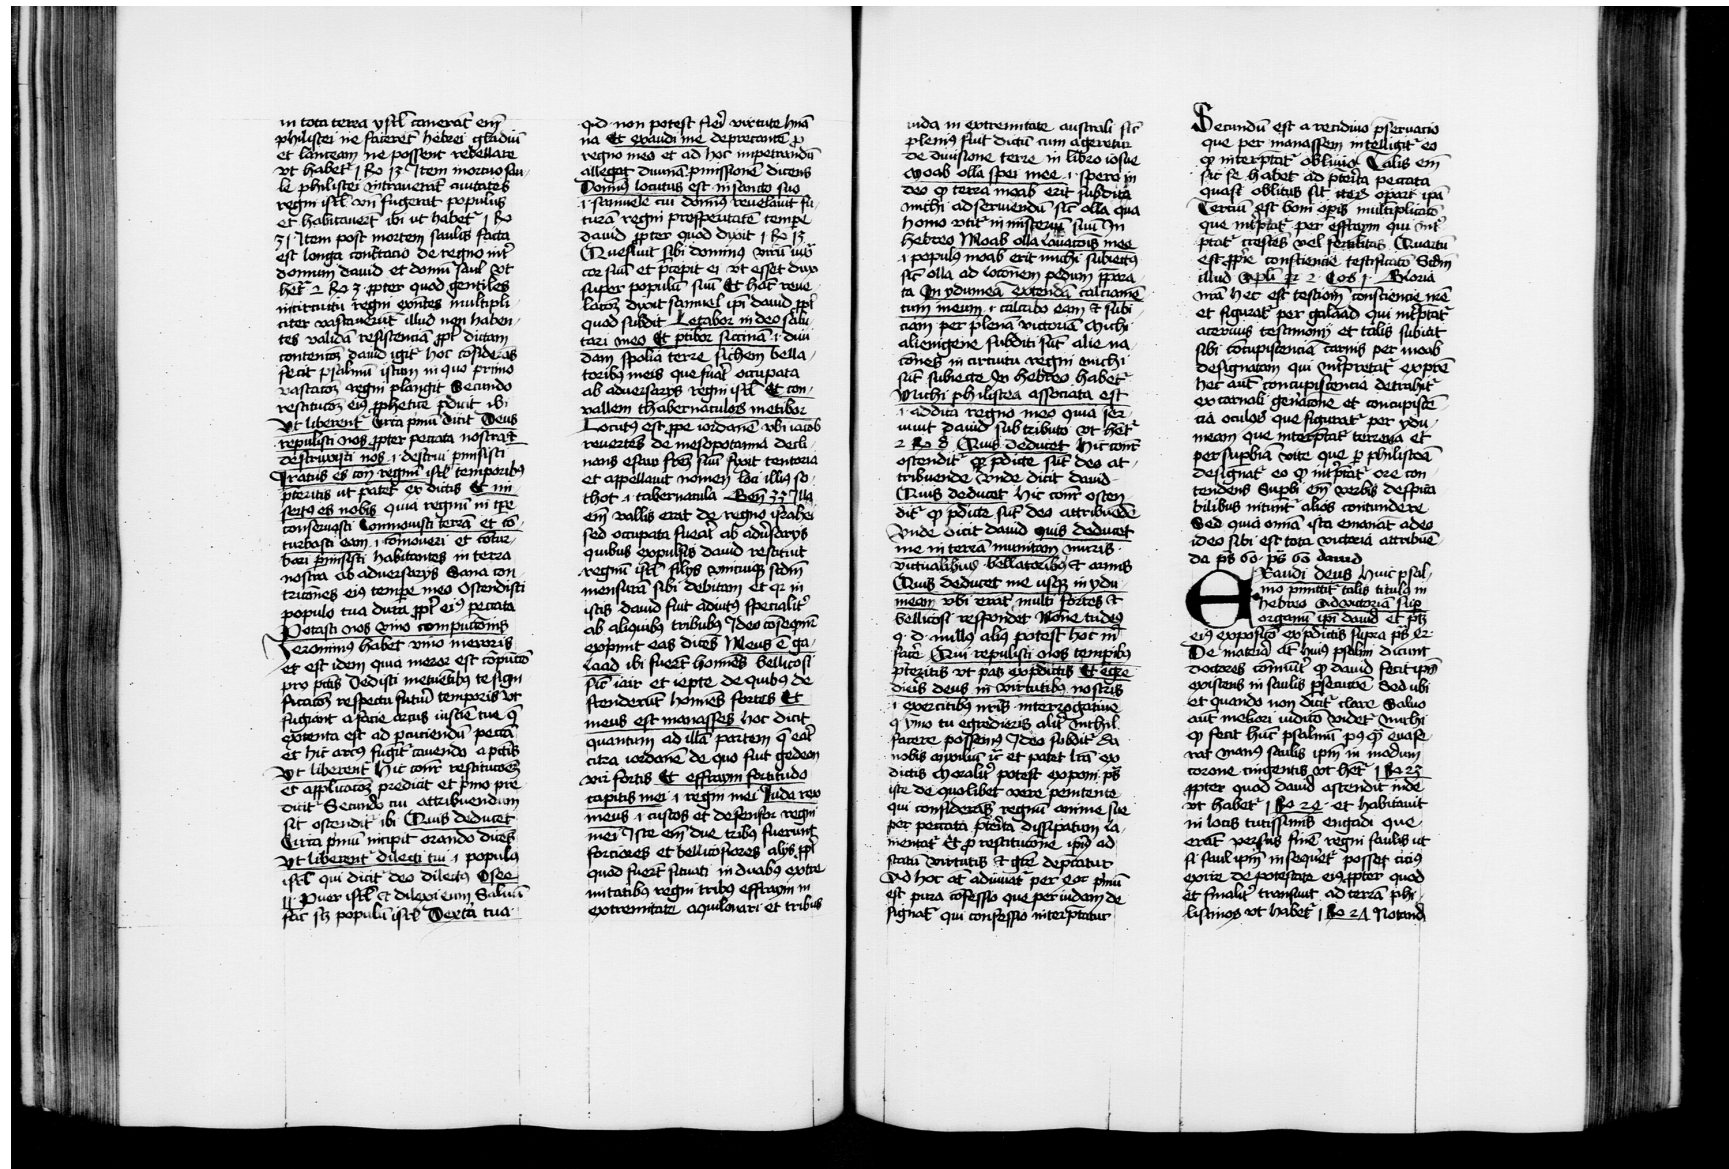 in tota terra ysrl̄ cauerāt em̄
philistei ne facerēt hebrei gladiū
et lanceam ne possent rebellare
vt habet̄ 1 Ro 13 Item mortuo sau⸗
le philistei intrauerāt ciuitates
regni isrl̄ vn̄ fugerat populus
et habitauert̄ ibi ut habet̄ 1 Ro
31 Item post mortem saulis facta
est longa conc̄tacio de regno int̄
domum dauid et domū saul vt
het̄ 2 Ro 3 ꝓpter quod gentiles
in circuitu regni exn̄tes multipli⸗
citer vastauerūt illud non haben⸗
tes validā resistenciā ꝓpt̄ dictam
contentōꝫ dauid igit̄ hoc cōsiderās
fecit psalmū istum in quo primo
vastatōꝫ regni plangit Secundo
restitucōꝫ eiꝰ ꝓphetice p̄dicit ibi
Vt liberent̄ Circa pmū dicit Deus
repulisti nos ꝓpter peccata nostra et
destruxisti nos .i. destrui pmisisti
Iratus es con̄ regnū isrl̄ temporibꝰ
p̄teritis ut patet̄ ex dictis Et mi⸗
sertꝰ es nobis quia regnū in t̄re
conseruasti Commouisti terrā et cō⸗
turbasti eam .i. cōmoueri et cōtur⸗
bari p̄misisti habitantes in terra
nostra ab aduersarijs Sana con⸗
tricōnes eiꝰ tempe meo Ostendisti
populo tuo dura ꝓpt̄ eiꝰ peccata
Potasti nos vino compunctōnis
Ieronimus habet vino meroris
et est idem quia meror est cōpūctō
pro pctīs Dedisti metuētibꝰ te sign̄
ficatōꝫ respectu futurī temporis vt
fugiant a facie arcus iusticie tue q̄
extenta est ad percuciendū peccat̄
et hic arcus fugit̄ cauendo a pctīs
Vt liberent̄ Hic con̄r restitucōeꝫ
et applicatōꝫ predicit et pmo pre
dicit Secundo cui attribuendum
sit ostendit ibi Quis deducet
Circa pmū incipit orando dicēs
Vt liberent̄ dilecti tui .i. populus
isrl̄ qui dicit̄ deo dilectꝰ Osee
11 Puer isrl̄ et dilexi eum Saluū
fac sꝫ populū isrl̄ Dextera tua
qd non potest fierī virtute hūa⸗
na Et exaudi me deprecantē ꝓ
regno meo et ad hoc impetrandū
allegat diuinā pmissionē dicens
Dominus locutus est in sancto suo
.i. samuele cui dominꝰ reuelauit fu⸗
turā regni prosperitatē tempe
dauid ꝓpter quod dixit 1 Ro 13
Quesiuit sibi dominꝰ virū iux̄
cor suū et p̄cepit ei vt esset dux
super populū suū Et hāc reue⸗
latōꝫ dixit samuel ipī dauid ꝓpt̄
quod subdit Letabor in deo salu⸗
tari meo Et ptibor siccimā .i. diui
dam spolia terre sichem bella⸗
toribꝰ meis que fuāt occupata
ab aduersarijs regni isrl̄ Et con⸗
uallem thabernaculoꝝ metibor
Locutus est ꝓpe iordanē vbi iacob
reuertēs de mesopotamia decli⸗
nans esau frēm suū fixit tentoria
et appellauit nomen loci illius so⸗
thot .i. tabernacula Gen̄ 33 Illa
em̄ vallis erat de regno israhel
sed occupata fuerat̄ ab adūsarijs
quibus expulsis dauid restituit
regnū isrl̄ filijs vnicuiqꝫ scdm̄
mensurā sibi debitam et qꝛ in
istis dauid fuit adiutꝰ specialit̄
ab aliquibꝰ tribubꝰ Ideo cōsequn̄
exprimit eas dicēs Meus ē ga⸗
laad ibi fuert̄ homīes bellicosi
sic̄ iair et iepte de quibꝰ de
scenderunt homīes fortes Et
meus est manasses hoc dicit
quantum ad illā partem q̄ erāt
citra iordanē de quo fuit gedeon
vir fortis Et effraym fortitudo
capitis mei .i. regni mei Iuda rex
meus .i. custos et defensor regni
mei Iste em̄ due tribꝰ fuerunt
forciores et bellicosiores alijs ꝓpt̄
quod fuert̄ situati in duabꝰ extre
mitatibꝰ regni tribꝰ effraym in
extremitate aquilonari et tribus
iuda in extremitate australi sic̄
pleniꝰ fuit dictū cum ageretur
de diuisione terre in libro iosue
Moab olla spei mee .i. spero in
deo qꝫ terra moab erit subdita
michi ad seruiendū sic̄ olla qua
homo vtit̄ in misteriū suū In
hebreo Moab olla lauatōis mee
.i. populꝰ moab erit michi subiectꝰ
sic̄ olla ad locōnem pedum ppara⸗
ta In ydumeā extendā calciamē
tum meum .i. calcabo eam et subi⸗
ciam per plenā victoriā Michi
alienigene subditi sūt alie na⸗
cōnes in circuitu regni michi
sūt subiecte In hebreo habet̄
Michi philistea associata est
.i. addita regno meo quia ser⸗
uiuit dauid sub tributo vt het̄
2 Ro 8 Quis deducet Hic con̄r
ostendit̄ qꝫ p̄dicte sūt deo at⸗
tribuende vnde dicit dauid
Quis deducet hic con̄r osten
dit̄ qꝫ p̄dicte sūt deo attribuēde
vnde dicit dauid quis deducet
me in terrā munitam muris
victualibꝰ bellatoribꝰ et armis
Quis deducet me usqꝫ in ydu⸗
meam vbi erāt multi fortes et
bellicosi respondet Nōne tu deꝰ
q. d. nullꝰ aliꝰ potest hoc m̄
facē Qui repulisti nos tempibꝰ
p̄teritis vt pat̄ ex p̄dictis Et egre
dieris deus in virtutibꝰ nostris
.i. exercitibꝰ nr̄is interrogatiue
q̄ ymo tu egredieris alit̄ nichil
facere possemꝰ Ideo subdit Da
nobis auxiliū et̄ et patet lrā ex
dictis Moralit̄ potest exponi ps̄
iste de quolibet vere penitente
qui consideras regnū anime sue
per peccata p̄terita dissipatum la⸗
mentat̄ Et ꝓ restitucōne ipiꝰ ad
statū virtutis et gr̄e deprecatur
Ad hoc at̄ adiuuat̄ per eoꝝ pmū
est pura cōfessio que per iudam de
signat̄ qui confessio interp̄tatur
Secundū est a recidiuo pseruacio
que per manassem intelligit̄ eo
qꝫ interp̄tat̄ obliuio Talis em̄
sic se habet ad pterita peccata
quasi oblitus sit iteꝝ opar̄ ipā
Terciū est boni opis multiplicatō
que int̄ptat̄ per effraym qui int̄
ptat̄ crescēs vel fertilitas Quartū
est ꝓprie consciencie testificatō Scdm̄
illud apl̄i 2 Cor 1 Gloria
nr̄a hec est testioīm consciencie nr̄e
et figurat̄ per galaad qui int̄ptat̄
aceruus testimonij et talis subiciat
sibi concupiscenciā carnis per moab
designatam qui int̄pretat̄ ex patrē
hec aut̄ concupiscencia detrahit̄
ex carnali gen̄acōne et concupiscē⸗
cia oculoꝝ que figurat̄ per ydu⸗
meam que interp̄tat̄ terrena et
per supbiā vite que p̄ philisteā
designat̄ eo qꝫ int̄ptat̄ ore con⸗
tendens Supbi em̄ verbis despica⸗
bilibus nitūnt̄ alios contundere
Sed quia omīa ista emanāt a deo
ideo sibi est tota victoria attribuē⸗
da ps̄ 60 ps̄ 60 dauid
Exaudi deus Huic psal⸗
mo pmittit̄ talis titulꝰ in
hebreo Ad victoriā sup
organū ipī dauid et ps̄
eiꝰ exposicō ex p̄dictis supra ps̄
De materia at̄ huiꝰ psalmi dicunt
doctores com̄unit̄ qꝫ dauid fecit ipm̄
existens in saulis psecucōe Sed ubi
et quando non dicit̄ clare Saluo
aut̄ meliori iudicio videt̄ michi
qꝫ fecit hūc psalmū pꝰ qꝫ euase⸗
rat manꝰ saulis ipm̄ in modum
corone cingentis vt het̄ 1 Ro 23
ꝓpter quod dauid ascendit inde
vt habet̄ 1 Ro 24 et habitauit
in locis tutissimis engadi que
erāt versus finē regni saulis ut
si saul ipm̄ insequeret̄ posset ciciꝰ
exire de potestate eiꝰ ꝓpter quod
et finalit̄ transiuit ad terrā phi⸗
listinoꝝ vt habet̄ 1 Ro 27 Notand̄